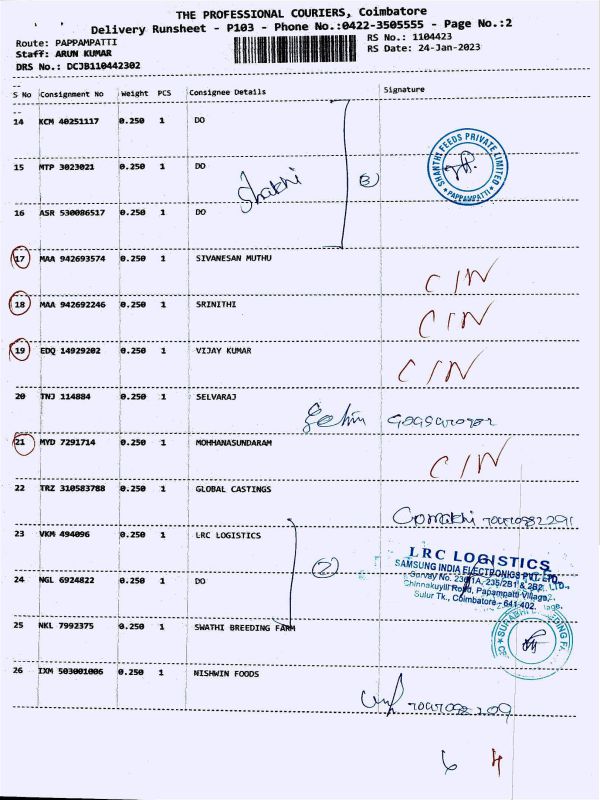 THE PROFESSIONAL COURIERS, Coimbatore
Delivery Runsheet - P103 - Phone No.:0422-3505555 - Page No.:2
Route: PAPPAMPATTI RS No.: 1104423
Staff: ARUN KUMAR RS Date: 24-Jan-2023
DRS No.: DCJB110442302
S No Consignment No Weight PCS Consignee Details Signature
14 KCM 40251117 0.250 1 DO
15 MTP 3023021 0.250 1 DO
SHANTHI FEEDS PRIVATE LIMITED
* PAPPAMPATTI *
Shakhi 3
16 ASR 530086517 0.250 1 DO
17 MAA 942693574 0.250 1 SIVANESAN MUTHU
C/N
18 MAA 942692246 0.250 1 SRINITHI
C/N
19 EDQ 14929202 0.250 1 VIJAY KUMAR
C/N
20 TNJ 114884 0.250 1 SELVARAJ
21 MYD 7291714 0.250 1 MOHHANASUNDARAM
C/N
22 TRZ 310583788 0.250 1 GLOBAL CASTINGS
23 VKM 494096 0.250 1 LRC LOGISTICS
2
LRC LOGISTICS
SAMSUNG INDIA ELECTRONICS PVT. LTD.
Survey No. 236/1A, 235/2B1 & 2B2
Chinnakuyili Road, Papampatti Village,
Sulur Tk., Coimbatore - 641 402.
24 NGL 6924822 0.250 1 DO
25 NKL 7992375 0.250 1 SWATHI BREEDING FARM
26 IXM 503001006 0.250 1 NISHWIN FOODS
6 4